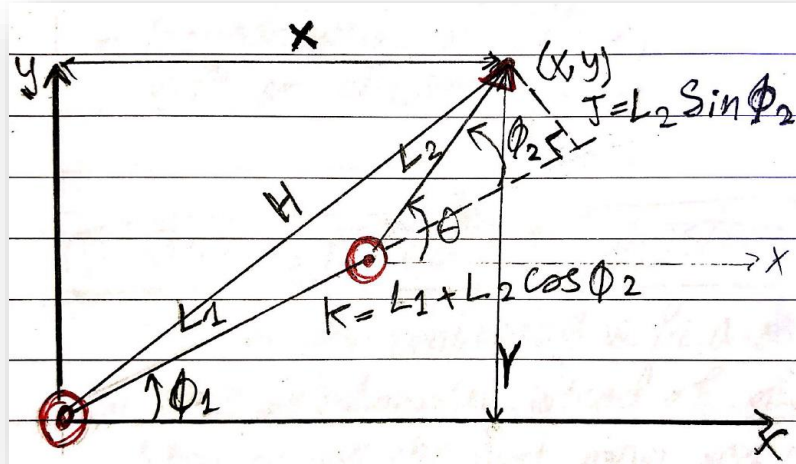 X
y
(x,y)
J=L2 Sin ϕ2
L2
ϕ2
H
θ
X
L1
K= L1+L2 cos ϕ2
Y
ϕ1
X